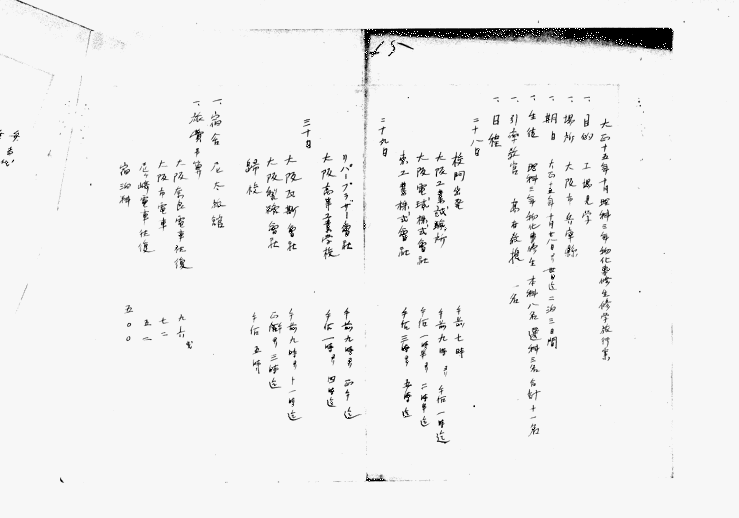 大正十五年十月 理科三年物化専修生修学旅行案
一、目的 工場見学
一、場所 大阪市兵庫縣
一、期日 大正十五年十月廿八日ヨリ卅日迄二泊三日間
一、生徒 理科三年物化専修生 本科八名 選科三名 合計十一名
一、引率教官 教授 一名
一、日程
二十八日
校門出発 午前七時
大阪工業試験所 午前九時ヨリ午后一時迄
大阪電球株式會社 午后一時半ヨリ二時半迄
東工業株式會社 午后三時ヨリ五時迄
二十九日
リバーブラザー會社 午前九時ヨリ正午迄
大阪高等工業学校 午后一時ヨリ四時迄
三十日
大阪瓦斯會社 午前九時ヨリ十一時迄
大阪製糖會社 正午ヨリ三時迄
歸校 午后五時
一、宿舎
一、旅費予算
大阪奈良電車往復 九六
大阪市電車 七二
尼ヶ崎電車往復 五二
宿泊料 五〇〇